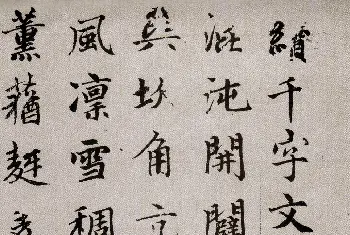 續千字文
混沌開闢
巽坎角亢
風凜雪稠
薰蕕麵